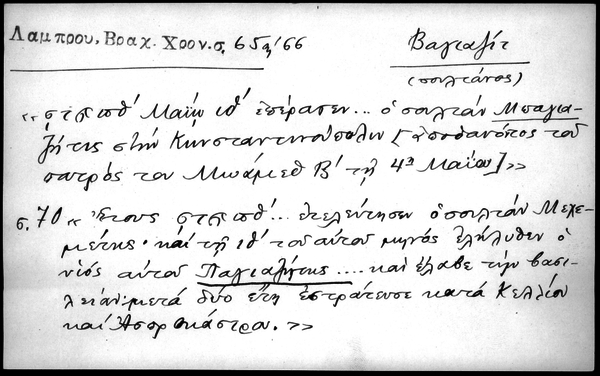 Λαμπρου, Βραχ. Χρον. σ. 65 66
Βαγιαζίτ
(σουλτάνος)
« ϛϡπθʹ Μαΐῳ ιθʹ ἐπέρασεν... ὁ σουλτὰν Μπαγια-
ζήτης στὴν Κωνσταντινούπολιν [ἀποθανόντος τοῦ
πατρός του Μωάμεθ Βʹ τῇ 4ῃ Μαΐου] »
σ. 70 « Ἔτους ϛϡπθʹ... ἐτελεύτησεν ὁ σουλτὰν Μεχε-
μέτης· καὶ τῇ ιθʹ τοῦ αὐτοῦ μηνὸς ἐλήλυθεν ὁ
υἱὸς αὐτοῦ Παγιαζήτης .... καὶ ἔλαβε τὴν βασι-
λείαν· μετὰ δύο ἔτη ἐστράτευσε κατὰ Κελλίου
καὶ Ἀσπροκάστρου. »